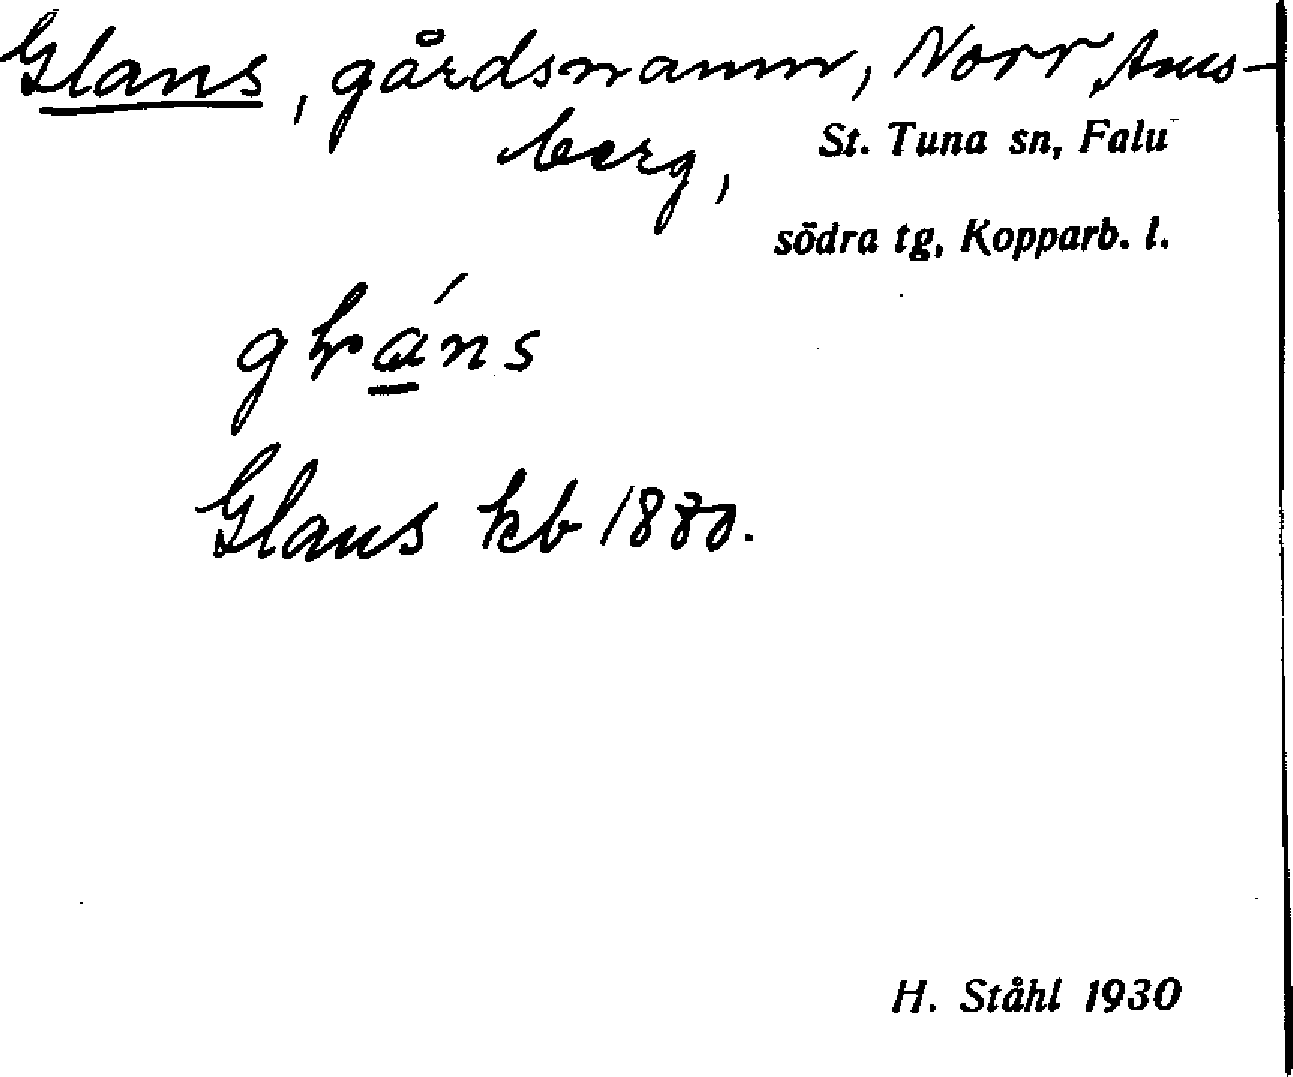 Glans, gårdsnamn, Norr Ams-
berg, St. Tuna sn, Falu
södra tg, Kopparb. l.
Glans kb 1880.
H. Ståhl 1930